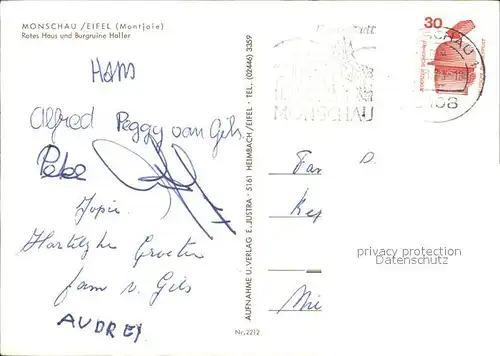 MONSCHAU /EIFEL (Montjoie)
Rotes Haus und Burgruine Haller
Hans
Alfred Peggy van Gils
Jopie
Hartelijke Groeten
fam v. Gils
AUDREY
AUFNAHME U. VERLAG E. JUSTRA · 5161 HEIMBACH /EIFEL · TEL. (02446) 3359
Nr. 2212
MONSCHAU
30
D.
Fam
Mi
privacy protection
Datenschutz